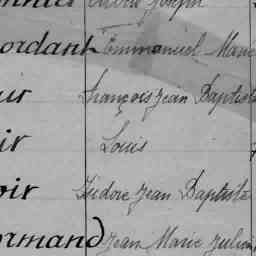 Joseph
ordant Emmanuel Marie
ur François Jean Baptiste
ir Louis
oir Isidore Jean Baptiste
ormand Jean Marie Julien